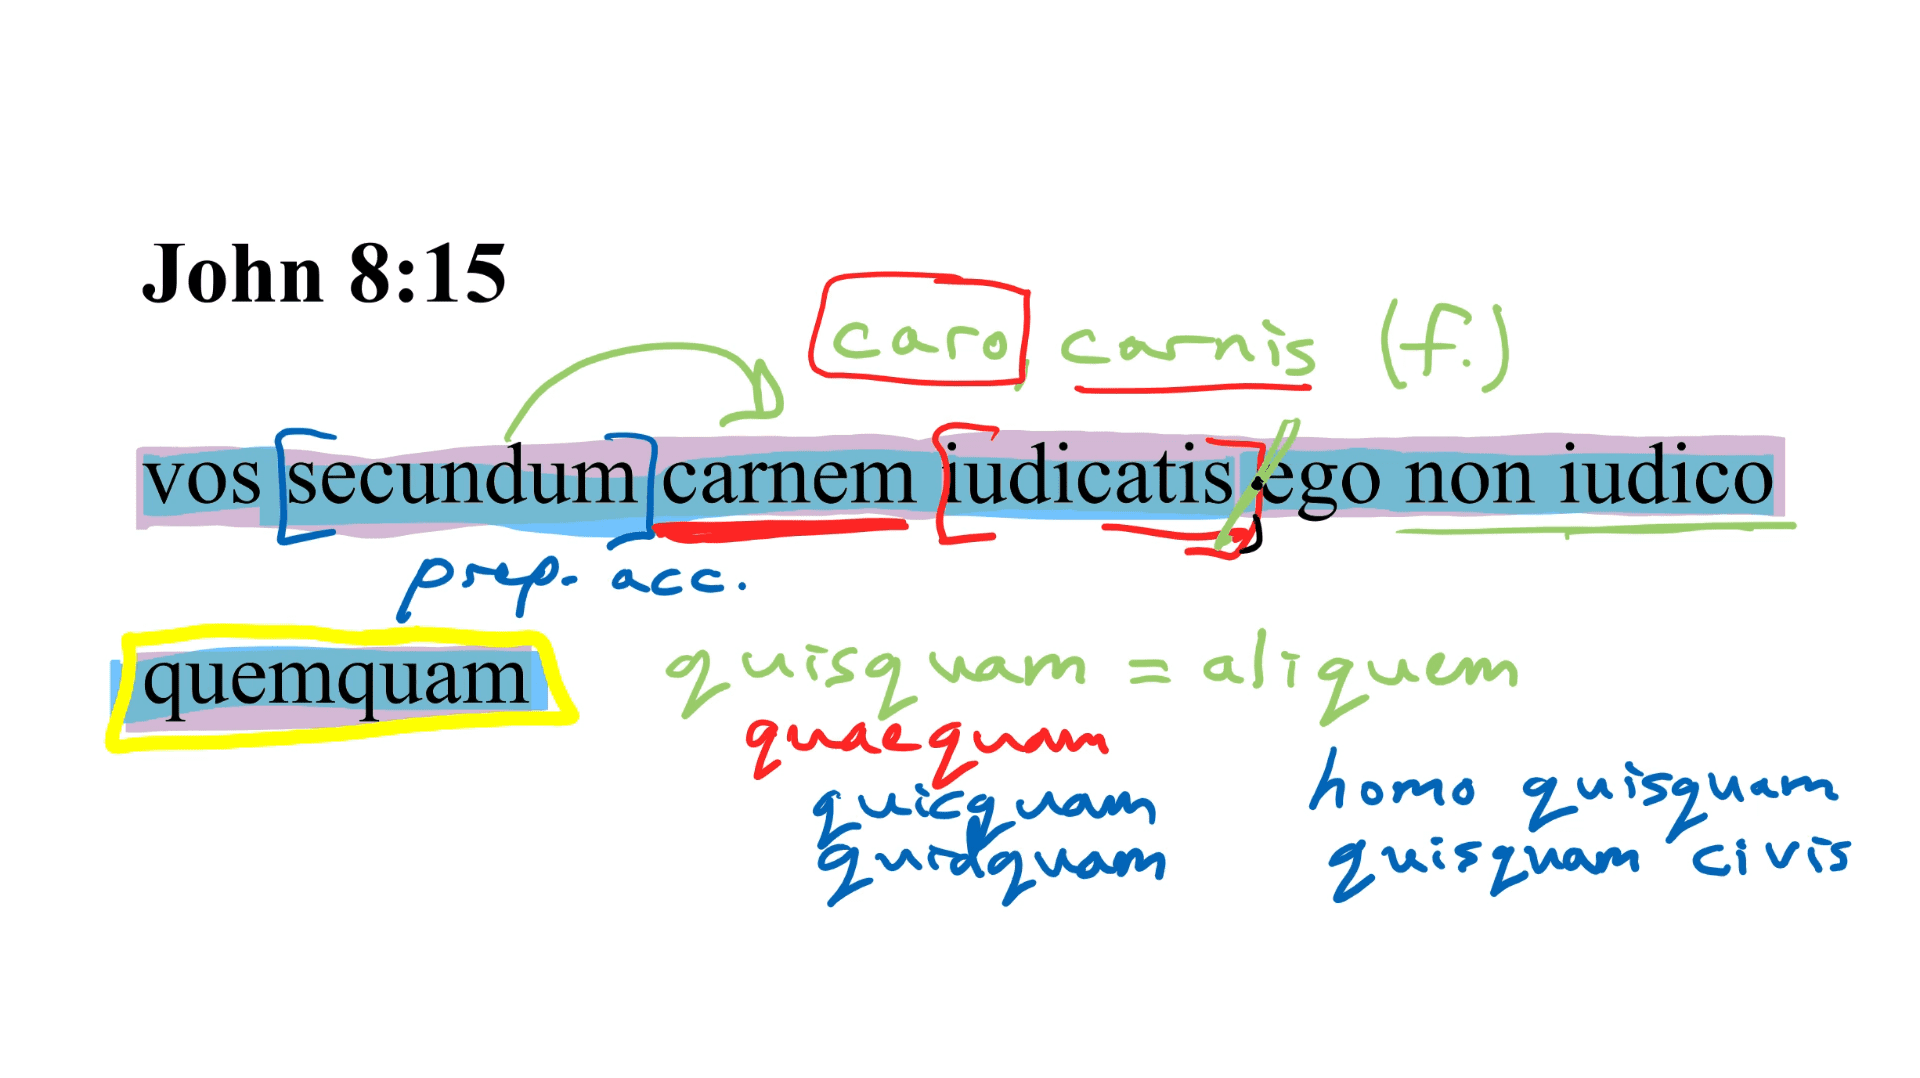 John 8:15
caro, carnis (f.)
vos secundum carnem iudicatis ego non iudico
prep. acc.
quemquam quisquam = aliquem
quaequam
quicquam homo quisquam
quidquam quisquam civis